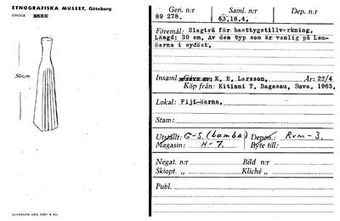 ETNOGRAFISKA MUSEET, Göteborg
30cm
Gen. n:r
89 278.
Saml. n:r
63.18.4.
Dep. n:r
Föremål: Slagträ för basttygstillverkning.
Längd: 30 cm. Av dem typ som är vanlig på Lau-
öarna i sydöst.
Insaml. K. E. Larsson, År: 22/4
Köp från: Kitimai T. Bagasau, Suva, 1963.
Lokal: Fiji-öarna.
Stam:
Utställt: G-S. (bamba) Depon.: Rum-3.
Magasin: H-7. Byte till:
Negat. n:r Bild n:r
Skiopt. „ Kliché „
Publ.